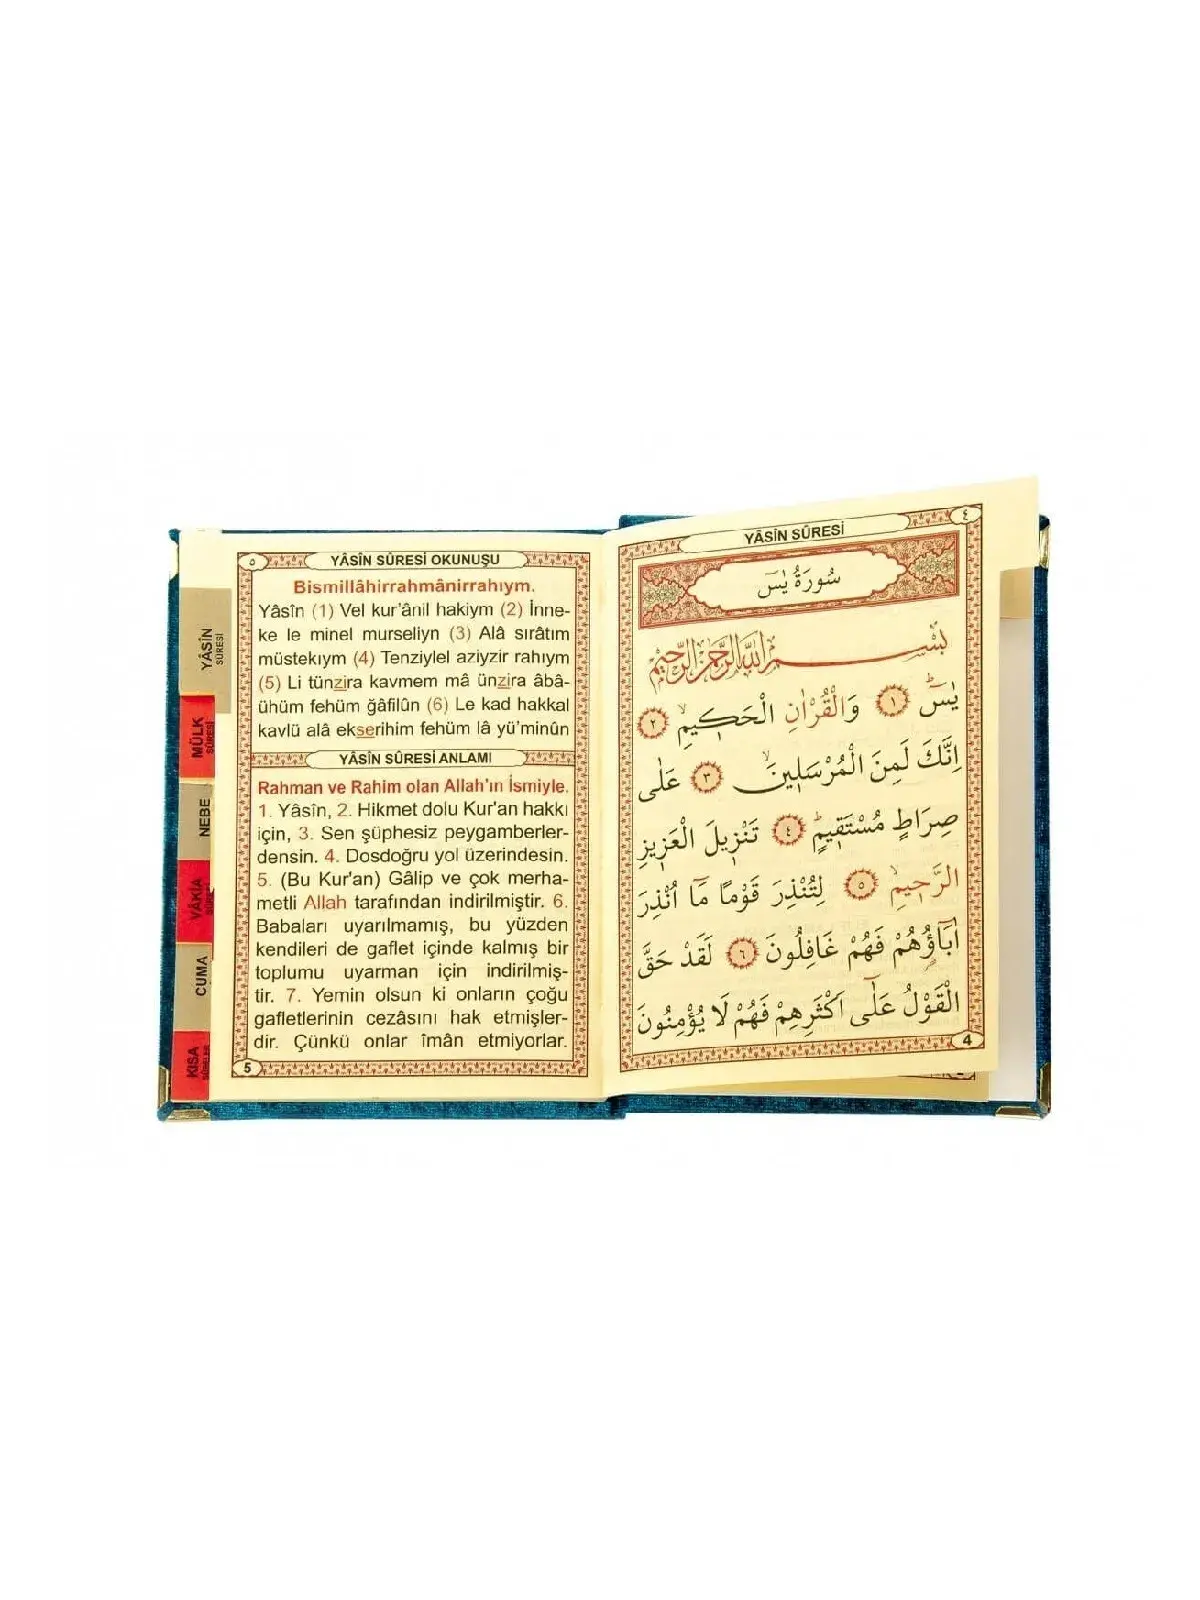 ٥
YÂSÎN SÛRESİ OKUNUŞU
Bismillâhirrahmânirrahıym.
Yâsîn (1) Vel kur'ânil hakiym (2) İnne-
ke le minel murseliyn (3) Alâ sırâtım
müstekıym (4) Tenziylel aziyzir rahıym
(5) Li tünzira kavmem mâ ünzira âbâ-
ühüm fehüm ğâfilûn (6) Le kad hakkal
kavlü alâ ekserihim fehüm lâ yü'minûn
YÂSÎN SÛRESİ ANLAMI
Rahman ve Rahim olan Allah'ın İsmiyle.
1. Yâsîn, 2. Hikmet dolu Kur'an hakkı
için, 3. Sen şüphesiz peygamberler-
densin. 4. Dosdoğru yol üzerindesin.
5. (Bu Kur'an) Gâlip ve çok merha-
metli Allah tarafından indirilmiştir. 6.
Babaları uyarılmamış, bu yüzden
kendileri de gaflet içinde kalmış bir
toplumu uyarman için indirilmiş-
tir. 7. Yemin olsun ki onların çoğu
gafletlerinin cezâsını hak etmişler-
dir. Çünkü onlar îmân etmiyorlar.
5
YÂSÎN
SÛRESİ
MÜLK
SÛRESİ
NEBE
VÂKIA
SÛRESİ
CUMA
KISA
SÛRELER
٤
YÂSİN SÛRESİ
سُورَةُ يٰسٓ
بِسْمِ اللّٰهِ الرَّحْمٰنِ الرَّحِيمِ
يٰسٓ ﴿١﴾ وَالْقُرْاٰنِ الْحَك۪يمِۙ ﴿٢﴾
اِنَّكَ لَمِنَ الْمُرْسَل۪ينَۙ ﴿٣﴾ عَلٰى
صِرَاطٍ مُسْتَق۪يمٍۜ ﴿٤﴾ تَنْز۪يلَ الْعَز۪يزِ
الرَّح۪يمِۙ ﴿٥﴾ لِتُنْذِرَ قَوْمًا مَٓا اُنْذِرَ
اٰبَٓاؤُ۬هُمْ فَهُمْ غَافِلُونَ ﴿٦﴾ لَقَدْ حَقَّ
الْقَوْلُ عَلٰٓى اَكْثَرِهِمْ فَهُمْ لَا يُؤْمِنُونَ
4